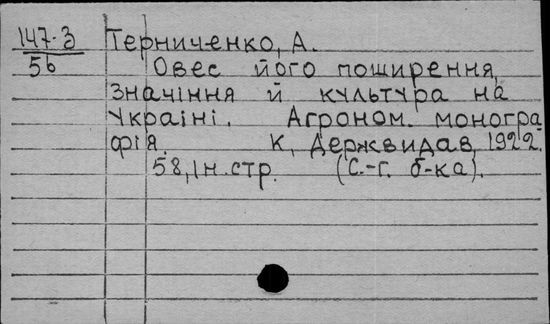 147-3 Терниченко, А.
56 Овес його поширення,
значіння й культура на
Україні. Агроном. моногра-
фія. К, Держвидав, 1922.
58, Iн. стр. (С.-г. б-ка).